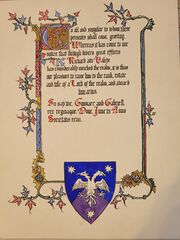 To all and singular to whom these
presents shall come, greeting.
Whereas it has come to our
notice that through divers great efforts
Richard
has considerably enriched the realm, it is thus
our pleasure to raise him to the rank, estate
and title of a Lord of the realm, and award
him arms.
So say we, Gunnar and Gabrell,
rex reginaque. Done, June 11 Anno
Societatis